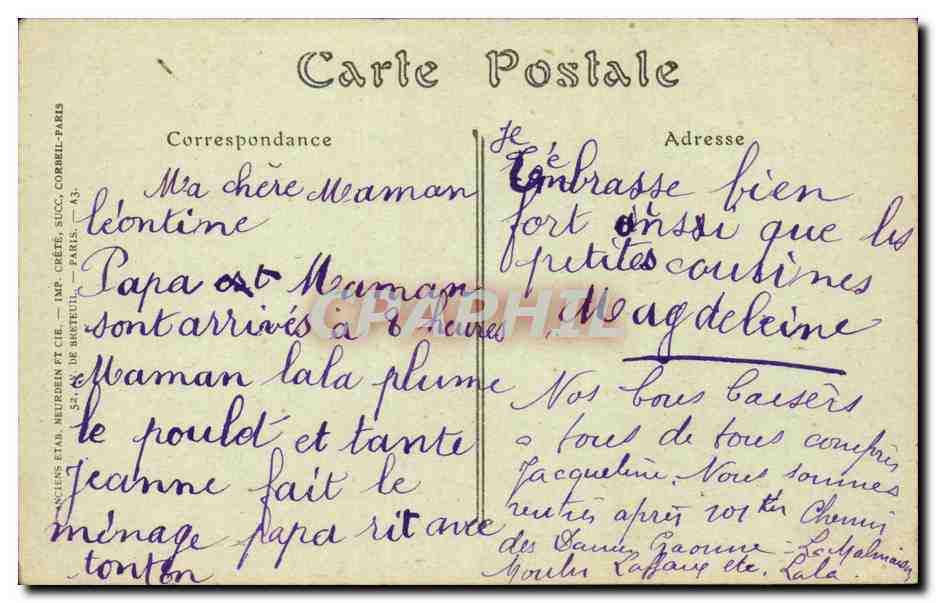 Carte Postale
Correspondance
Ma chère Maman
léontine
Papa et Maman
sont arrivés à 8 heures
Maman lala plume
le poulet et tante
Jeanne fait le
ménage papa rit avec
tonton
Adresse
Je
t'embrasse bien
fort ainssi que les
petites cousines
Magdeleine
Nos bons baisers
a tous de tous compris
Jacqueline. Nous sommes
rentrés après Chemin
des Dames - La Malmaison
Moulin Laffaux etc. Lala.
ANCIENS ETAB. NEURDEIN ET CIE. — IMP. CRÉTÉ, SUCC, CORBEIL-PARIS
52, AV. DE BRETEUIL, — PARIS. — A3.
CPAPHIL